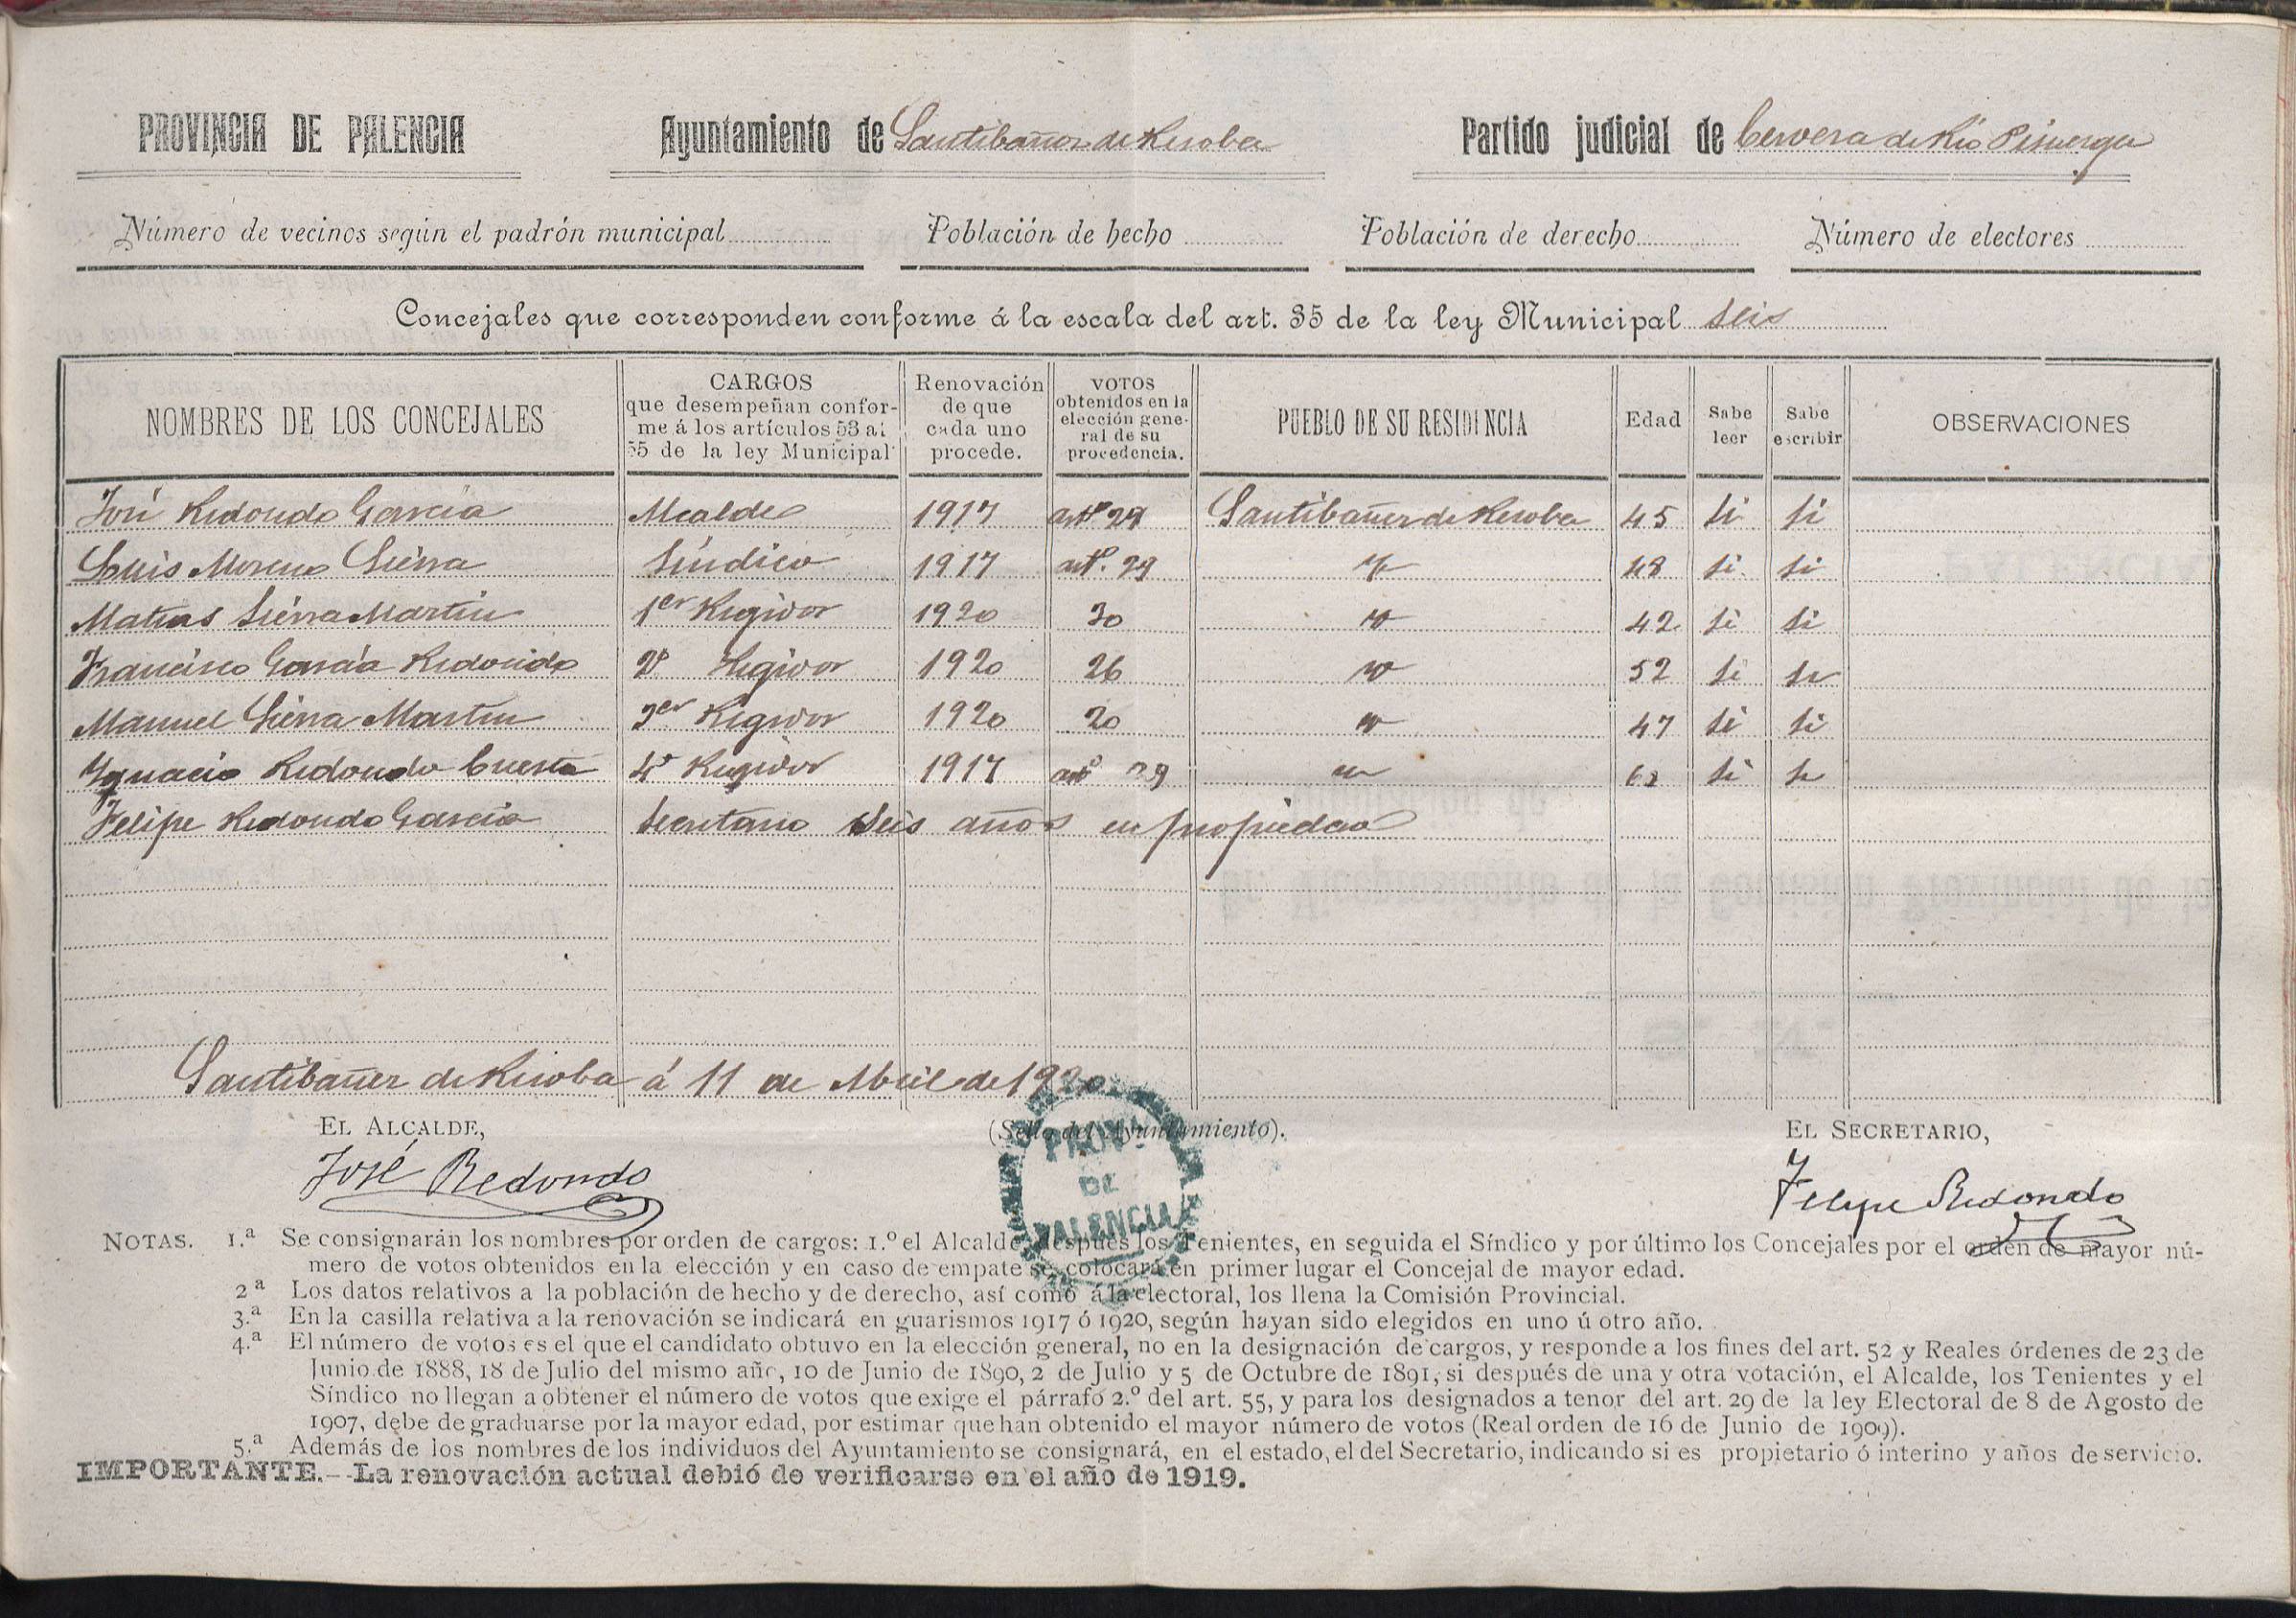 PROVINCIA DE PALENCIA Ayuntamiento de Santibañez de Resoba Partido judicial de Cervera de Rio Pisuerga
Número de vecinos según el padrón municipal Población de hecho Población de derecho Número de electores
Concejales que corresponden conforme á la escala del art. 35 de la ley Municipal seis
NOMBRES DE LOS CONCEJALES
CARGOS
que desempeñan confor-
me á los artículos 53 al
55 de la ley Municipal
Renovación
de que
cada uno
procede.
VOTOS
obtenidos en la
elección gene-
ral de su
procedencia.
PUEBLO DE SU RESIDENCIA
Edad
Sabe
leer
Sabe
escribir
OBSERVACIONES
José Redondo García Alcalde 1917 artº 29 Santibañez de Resoba 45 si si
Luis Moreno Sierra Síndico 1917 artº. 29 45 si si
Matias Sierra Martin 1er Regidor 1920 30 42 si si
Francisco García Redondo 2º Regidor 1920 26 52 si si
Manuel Sierra Martin 3er Regidor 1920 20 47 si si
Ygnacio Redondo Cuesta 4º Regidor 1917 artº 29 si si
Felipe Redondo García Secretario seis años en propiedad
Santibañez de Resoba á 11 de Abril de 1920
EL ALCALDE, (Sello del Ayuntamiento). EL SECRETARIO,
José Redondo Felipe Redondo
DE
PALENCIA
NOTAS. 1.ª Se consignarán los nombres por orden de cargos: 1.º el Alcalde, después los Tenientes, en seguida el Síndico y por último los Concejales por el orden de mayor nú-
mero de votos obtenidos en la elección y en caso de empate se colocará en primer lugar el Concejal de mayor edad.
2ª Los datos relativos a la población de hecho y de derecho, así como á la electoral, los llena la Comisión Provincial.
3.ª En la casilla relativa a la renovación se indicará en guarismos 1917 ó 1920, según hayan sido elegidos en uno ú otro año.
4.ª El número de votos es el que el candidato obtuvo en la elección general, no en la designación de cargos, y responde a los fines del art. 52 y Reales órdenes de 23 de
Junio de 1888, 18 de Julio del mismo año, 10 de Junio de 1890, 2 de Julio y 5 de Octubre de 1891, si después de una y otra votación, el Alcalde, los Tenientes y el
Síndico no llegan a obtener el número de votos que exige el párrafo 2.º del art. 55, y para los designados a tenor del art. 29 de la ley Electoral de 8 de Agosto de
1907, debe de graduarse por la mayor edad, por estimar que han obtenido el mayor número de votos (Real orden de 16 de Junio de 1909).
5.ª Además de los nombres de los individuos del Ayuntamiento se consignará, en el estado, el del Secretario, indicando si es propietario ó interino y años de servicio.
IMPORTANTE.—La renovación actual debió de verificarse en el año de 1919.